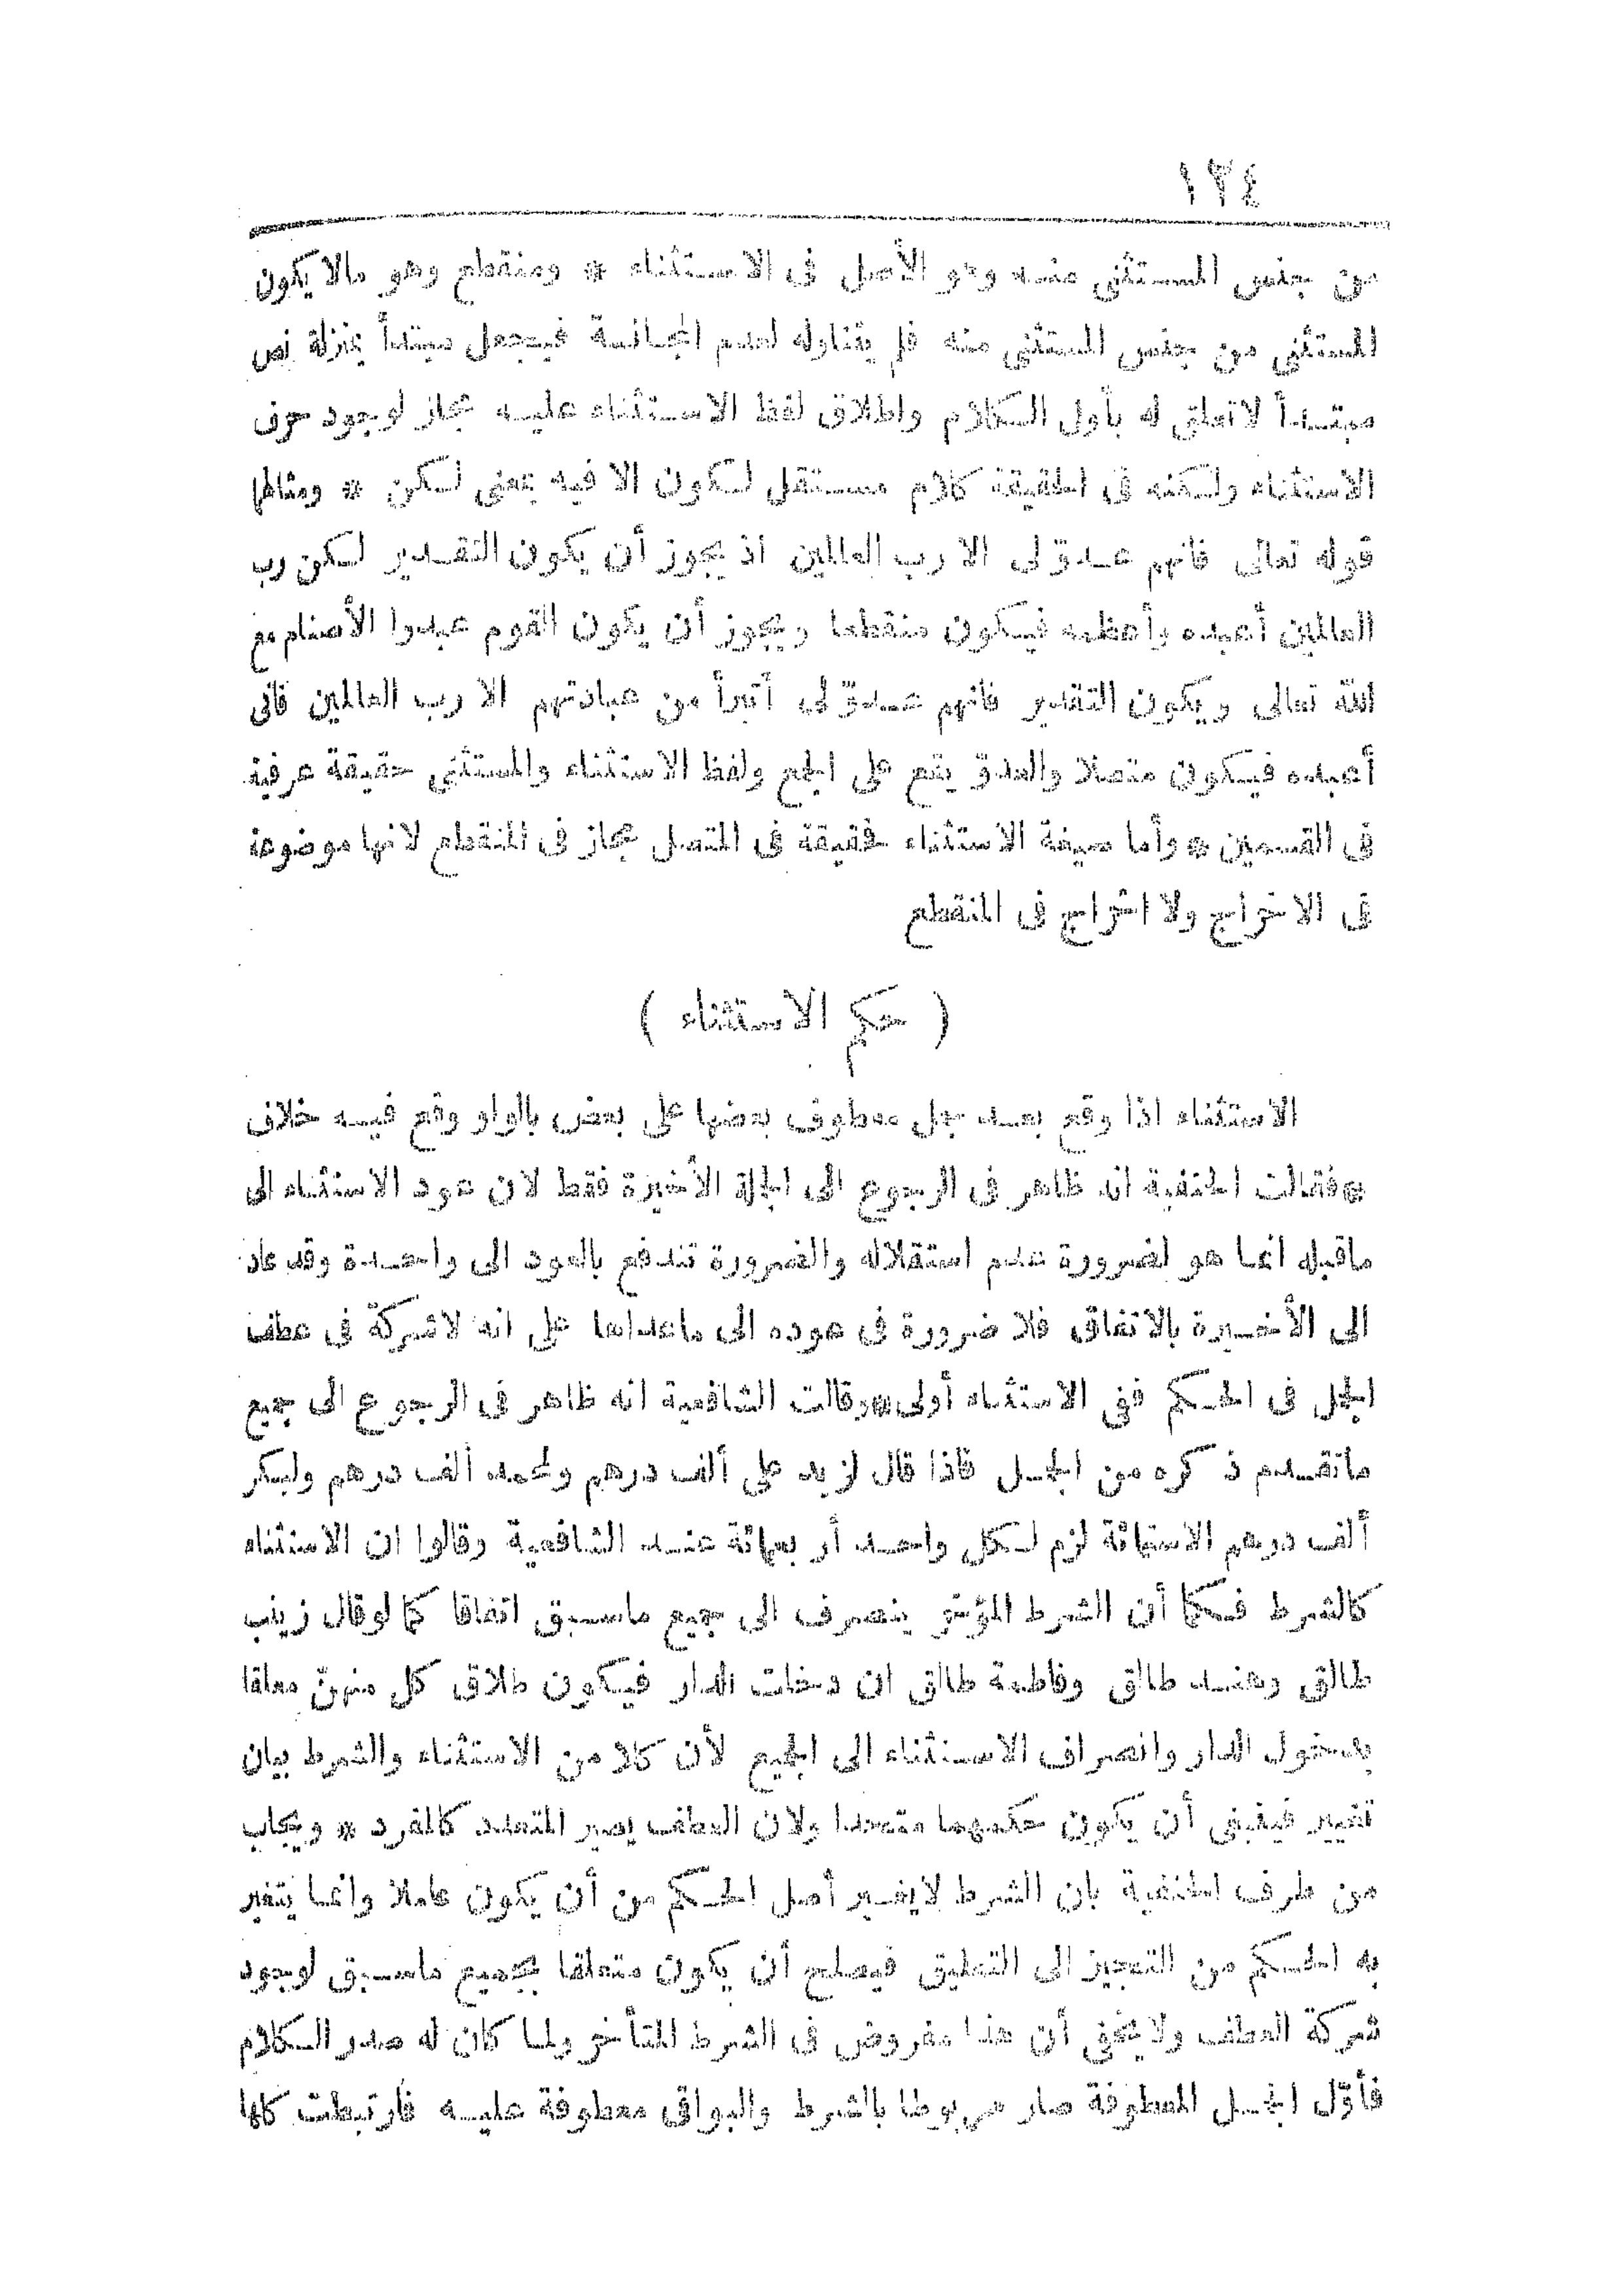 ١٣٤
من جنس المستثنى منه وهو الأصل فى الاستثناء * ومنقطع وهو مالا يكون
المستثنى من جنس المستثنى منه فلم يتناوله لعدم المجانسة فيجعل مبتدأ بمنزلة نص
مبتدأ لاتعلق له بأول الكلام واطلاق لفظ الاستثناء عليه مجاز لوجود حرف
الاستثناء ولكنه فى الحقيقة كلام مستقل لكون الا فيه بمعنى لكن * ومثالها
قوله تعالى فانهم عدوّ لى الا رب العالمين اذ يجوز أن يكون التقدير لكن رب
العالمين أعبده وأعظمه فيكون منقطعا ويجوز أن يكون القوم عبدوا الأصنام مع
الله تعالى ويكون التقدير فانهم عدوّ لى أتبرأ من عبادتهم الا رب العالمين فانى
أعبده فيكون متصلا والعدوّ يقع على الجمع ولفظ الاستثناء والمستثنى حقيقة عرفية
فى القسمين * وأما صيغة الاستثناء فحقيقة فى المتصل مجاز فى المنقطع لانها موضوعة
فى الاخراج ولا اخراج فى المنقطع
( حكم الاستثناء )
الاستثناء اذا وقع بعد جمل معطوف بعضها على بعض بالواو وقع فيه خلاف
*فقالت الحنفية انه ظاهر فى الرجوع الى الجملة الأخيرة فقط لان عود الاستثناء الى
ماقبله انما هو لضرورة عدم استقلاله والضرورة تندفع بالعود الى واحدة وقد عاد
الى الأخيرة بالاتفاق فلا ضرورة فى عوده الى ماعداها على انه لاشركة فى عطف
الجمل فى الحكم ففى الاستثناء أولى*وقالت الشافعية انه ظاهر فى الرجوع الى جميع
ماتقدم ذكره من الجمل فاذا قال لزيد على ألف درهم ولمحمد ألف درهم ولبكر
ألف درهم الاستمائة لزم لكل واحد أربعمائة عند الشافعية وقالوا ان الاستثناء
كالشرط فكما أن الشرط المؤخر ينصرف الى جميع ماسبق اتفاقا كما لوقال زينب
طالق وهند طالق وفاطمة طالق ان دخلت الدار فيكون طلاق كل منهنّ معلقا
بدخول الدار وانصراف الاستثناء الى الجميع لأن كلا من الاستثناء والشرط بيان
تغيير فينبغى أن يكون حكمهما متحدا ولان العطف يصير المتعدد كالمفرد * ويجاب
من طرف الحنفية بان الشرط لايغير أصل الحكم من أن يكون عاملا وانما يتغير
به الحكم من التنجيز الى التعليق فيصلح أن يكون متعلقا بجميع ماسبق لوجود
شركة العطف ولا يخفى أن هذا مفروض فى الشرط المتأخر ولما كان له صدر الكلام
فأوّل الجمل المعطوفة صار مربوطا بالشرط والبواقى معطوفة عليه فارتبطت كلها